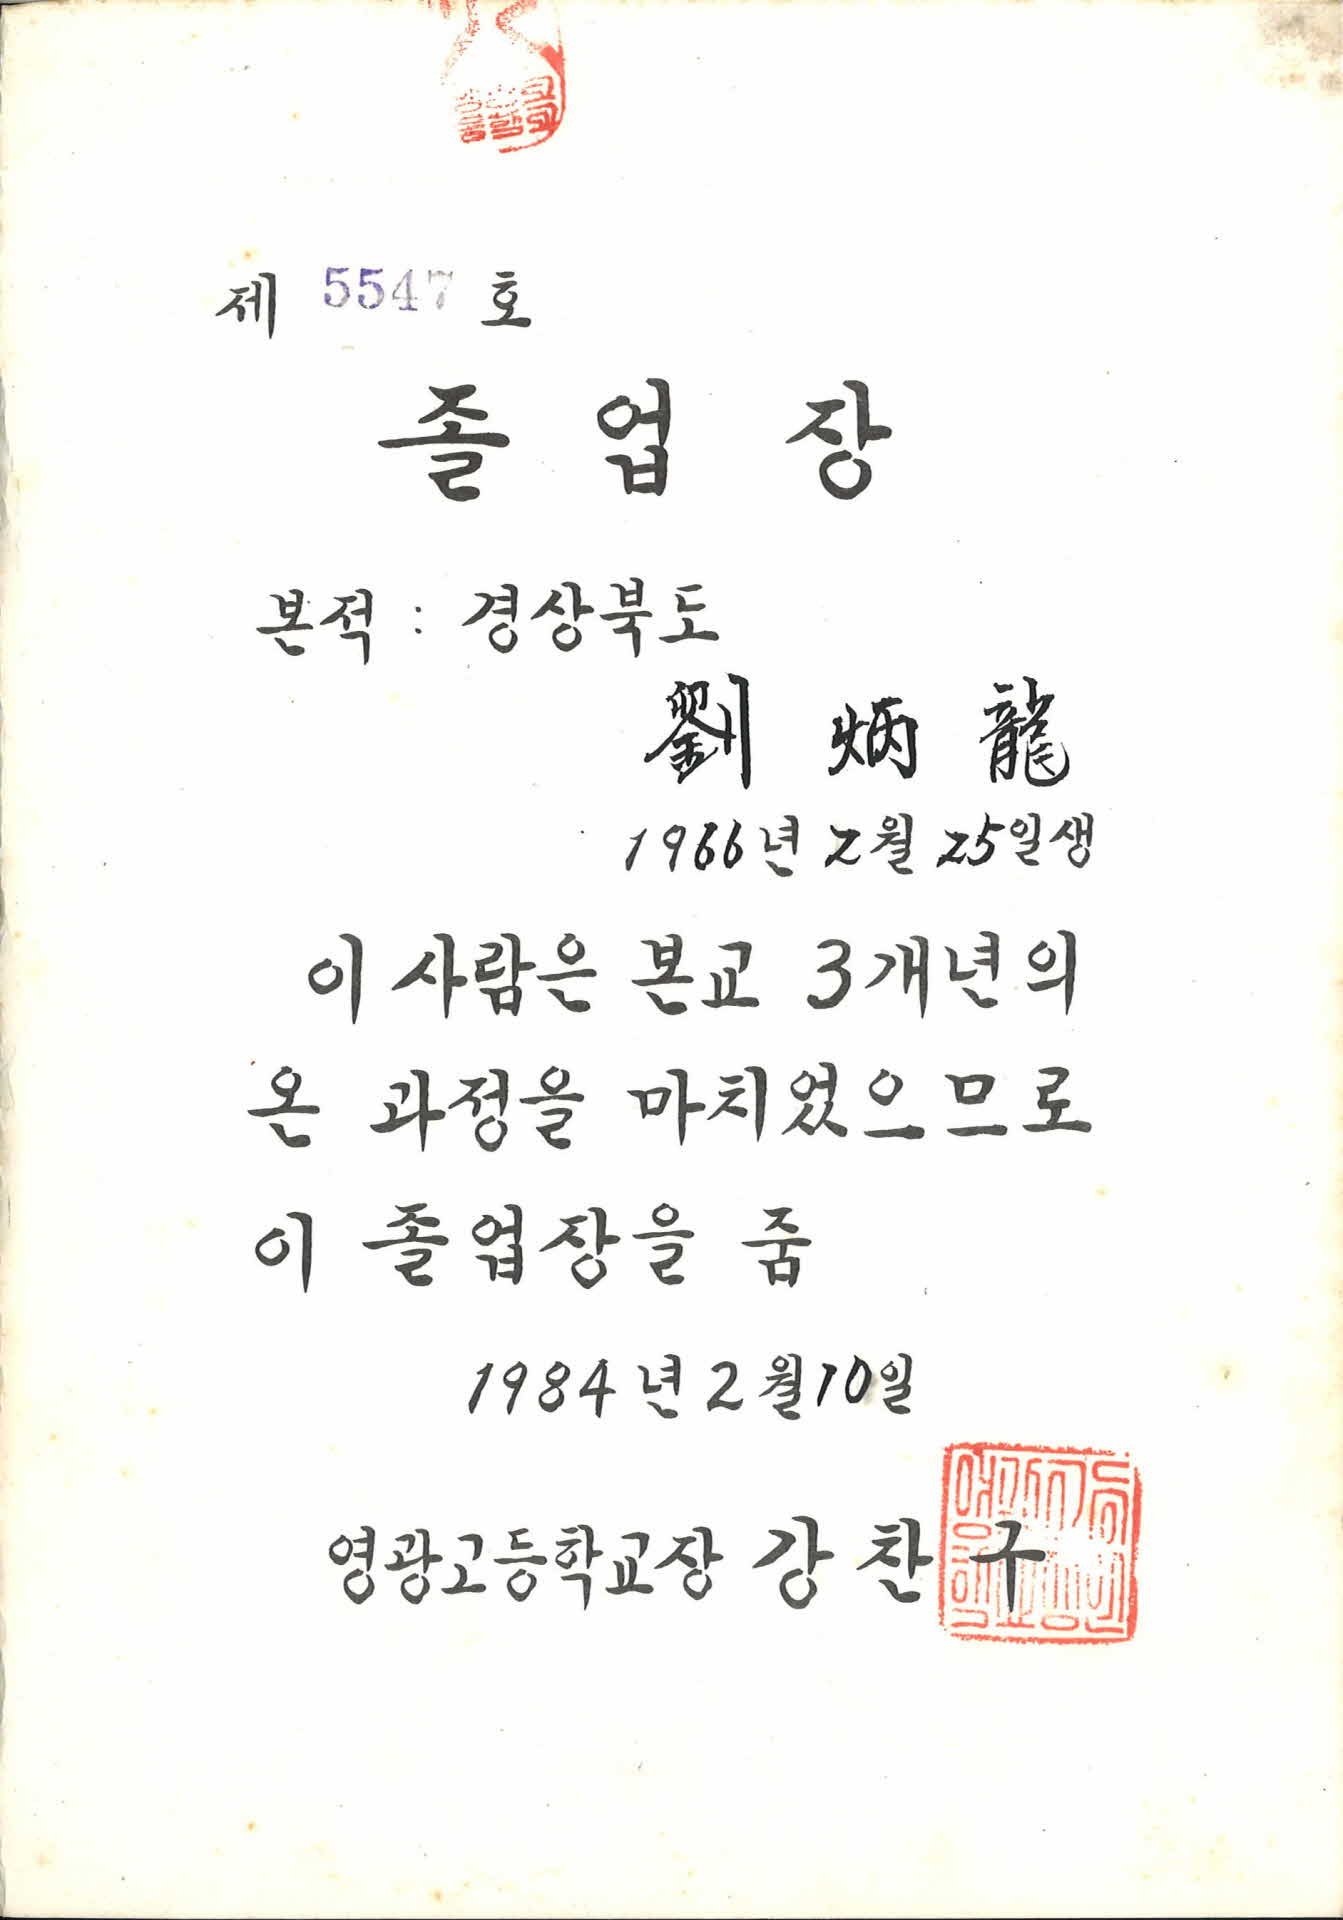 제 5547 호
졸업장
본적 : 경상북도
劉炳龍
1966년 2월 25일생
이 사람은 본교 3개년의
온 과정을 마치었으므로
이 졸업장을 줌
1984년 2월 10일
영광고등학교장 강찬구